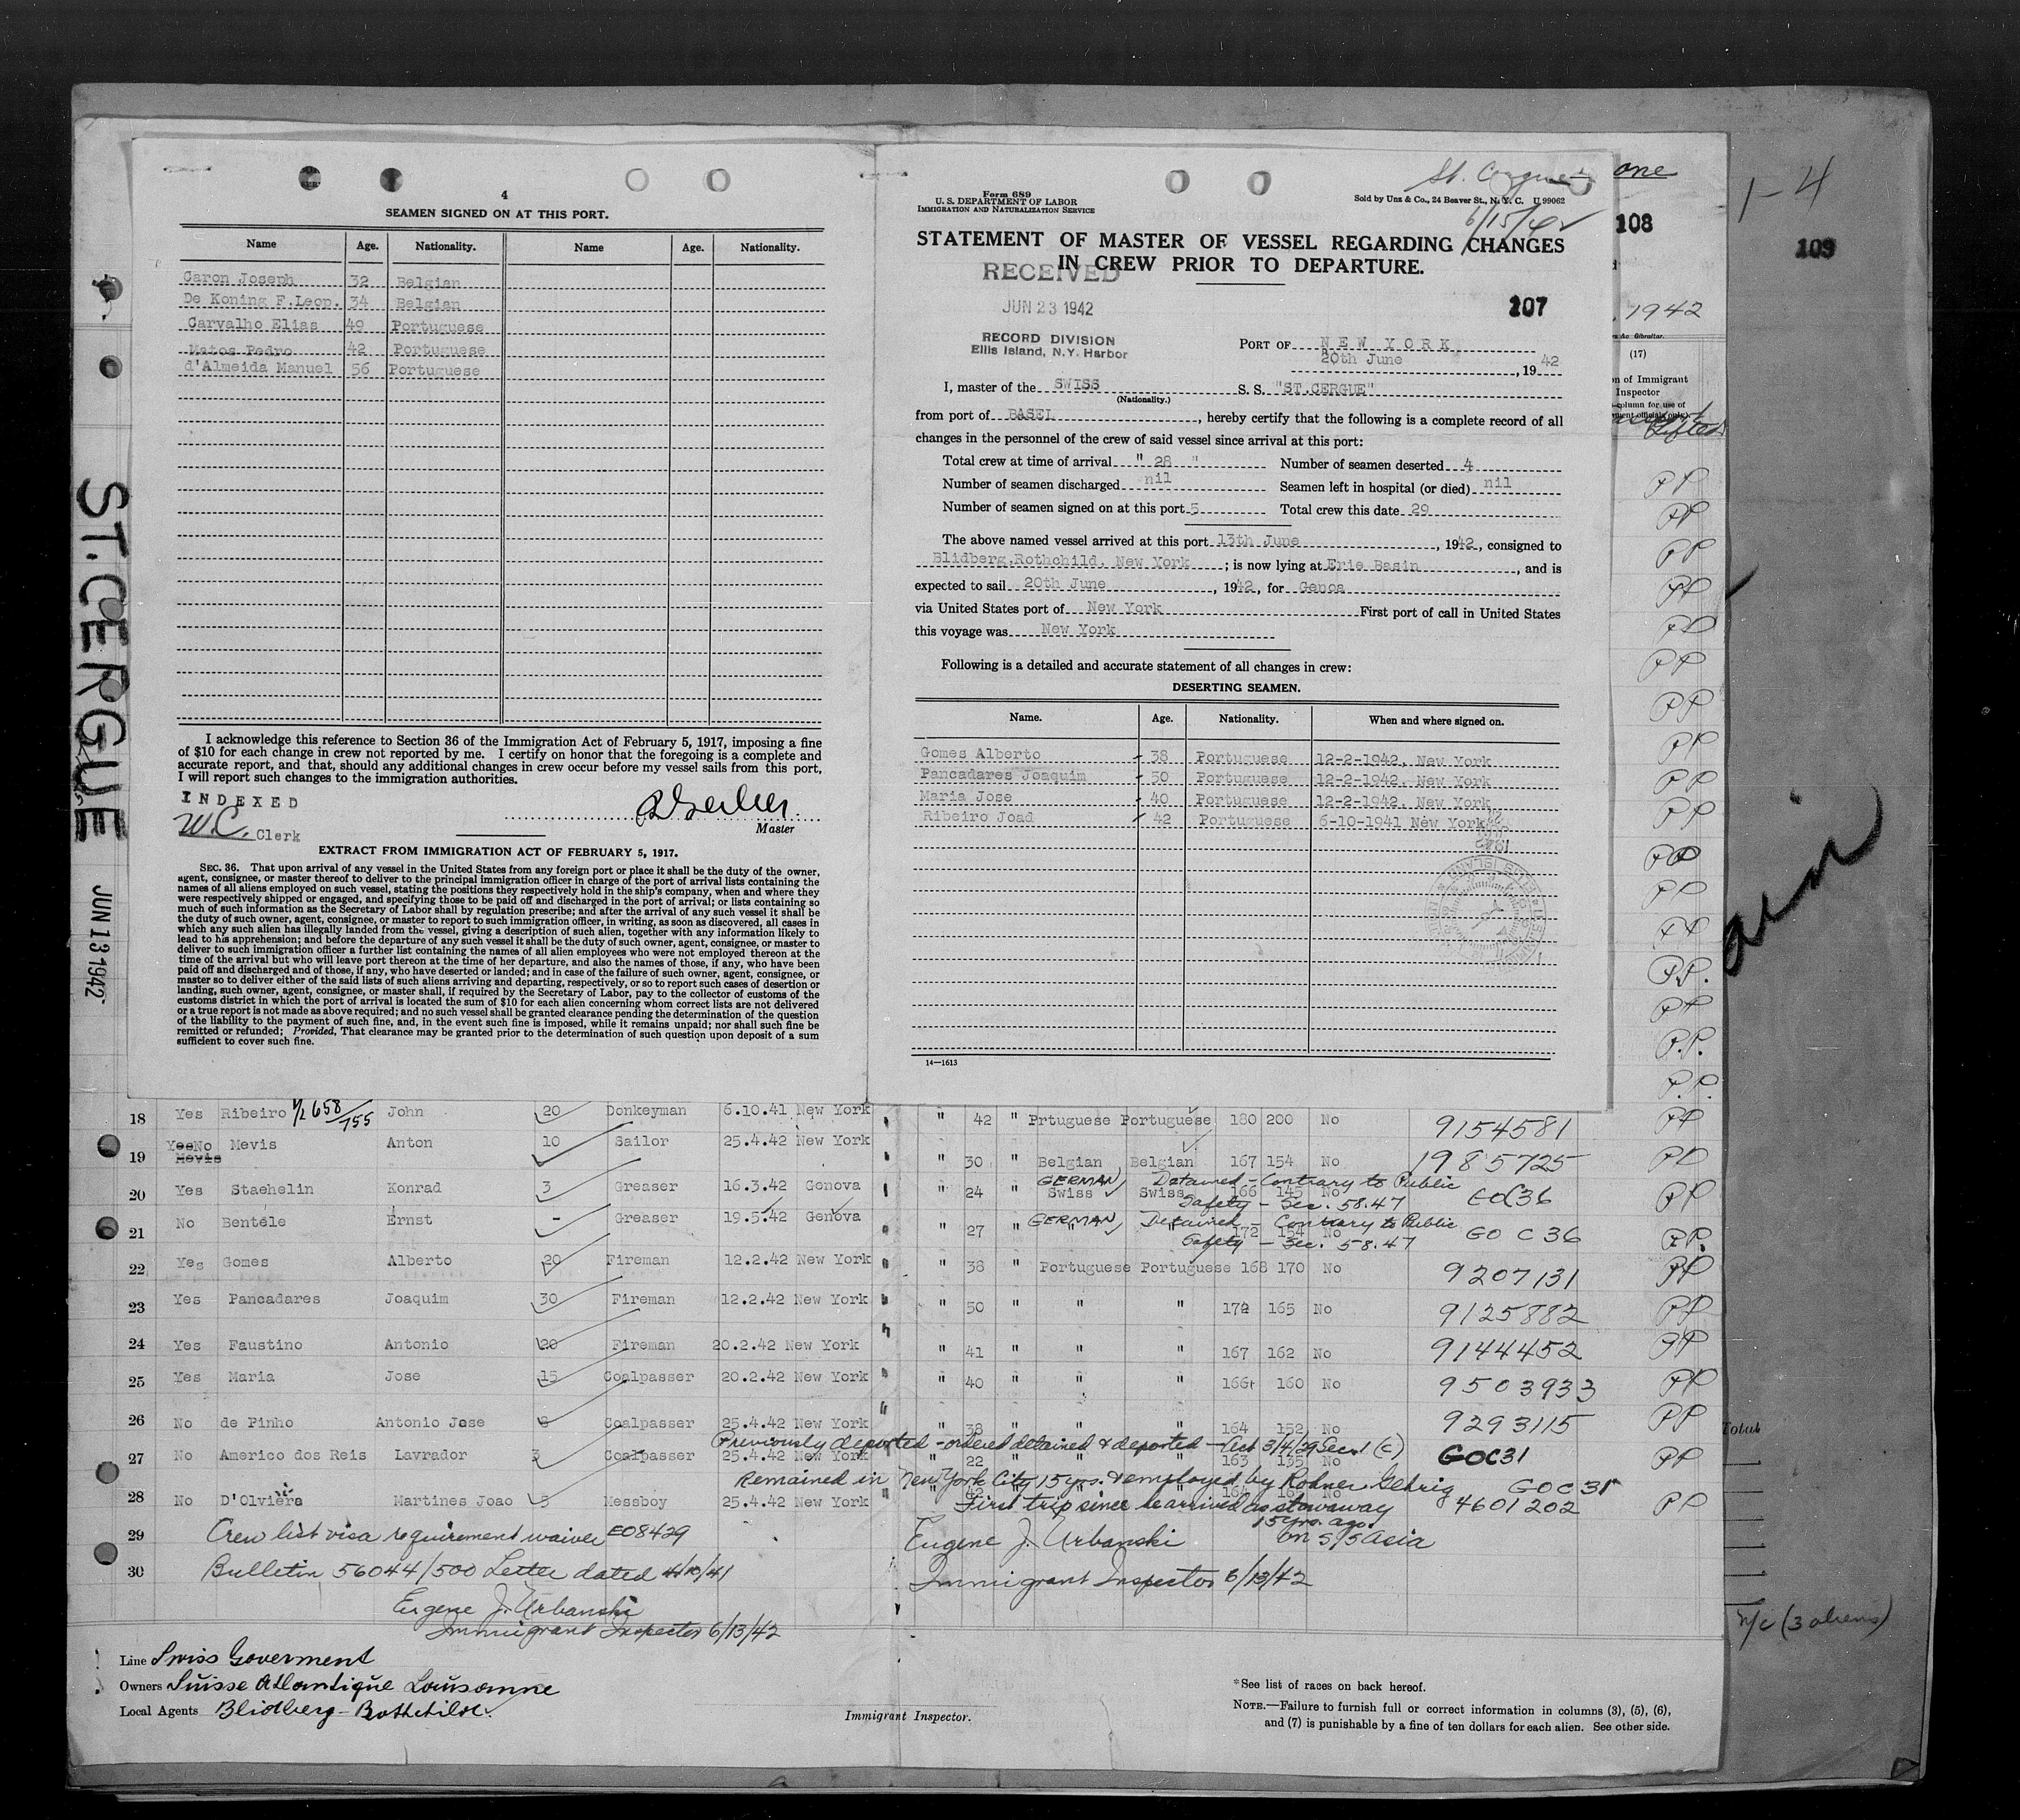 4
SEAMEN SIGNED ON AT THIS PORT.
Name Age. Nationality. Name Age. Nationality.
Caron Joseph 32 Belgian
De Koning F.Leop. 34 Belgian
Carvalho Elias 49 Portuguese
Matos Pedro 42 Portuguese
d'Almeida Manuel 56 Portuguese
I acknowledge this reference to Section 36 of the Immigration Act of February 5, 1917, imposing a fine
of $10 for each change in crew not reported by me. I certify on honor that the foregoing is a complete and
accurate report, and that, should any additional changes in crew occur before my vessel sails from this port,
I will report such changes to the immigration authorities.
INDEXED
W.C. Clerk
Master
EXTRACT FROM IMMIGRATION ACT OF FEBRUARY 5, 1917.
SEC. 36. That upon arrival of any vessel in the United States from any foreign port or place it shall be the duty of the owner,
agent, consignee, or master thereof to deliver to the principal immigration officer in charge of the port of arrival lists containing the
names of all aliens employed on such vessel, stating the positions they respectively hold in the ship's company, when and where they
were respectively shipped or engaged, and specifying those to be paid off and discharged in the port of arrival; or lists containing so
much of such information as the Secretary of Labor shall by regulation prescribe; and after the arrival of any such vessel it shall be
the duty of such owner, agent, consignee, or master to report to such immigration officer, in writing, as soon as discovered, all cases in
which any such alien has illegally landed from the vessel, giving a description of such alien, together with any information likely to
lead to his apprehension; and before the departure of any such vessel it shall be the duty of such owner, agent, consignee, or master to
deliver to such immigration officer a further list containing the names of all alien employees who were not employed thereon at the
time of the arrival but who will leave port thereon at the time of her departure, and also the names of those, if any, who have been
paid off and discharged and of those, if any, who have deserted or landed; and in case of the failure of such owner, agent, consignee, or
master so to deliver either of the said lists of such aliens arriving and departing, respectively, or so to report such cases of desertion or
landing, such owner, agent, consignee, or master shall, if required by the Secretary of Labor, pay to the collector of customs of the
customs district in which the port of arrival is located the sum of $10 for each alien concerning whom correct lists are not delivered
or a true report is not made as above required; and no such vessel shall be granted clearance pending the determination of the question
of the liability to the payment of such fine, and, in the event such fine is imposed, while it remains unpaid; nor shall such fine be
remitted or refunded; Provided, That clearance may be granted prior to the determination of such question upon deposit of a sum
sufficient to cover such fine.
ST. CERGUE
JUN 13 1942
St. Cergue
6/15/42
Form 689
U. S. DEPARTMENT OF LABOR
IMMIGRATION AND NATURALIZATION SERVICE
Sold by Unz & Co., 24 Beaver St., N. Y. C. U 99062
STATEMENT OF MASTER OF VESSEL REGARDING CHANGES
IN CREW PRIOR TO DEPARTURE.
RECEIVED
JUN 23 1942
RECORD DIVISION
Ellis Island, N.Y. Harbor
107
PORT OF NEW YORK
20th June, 1942
I, master of the SWISS S. S. "ST.CERGUE"
(Nationality.)
from port of BASEL, hereby certify that the following is a complete record of all
changes in the personnel of the crew of said vessel since arrival at this port:
Total crew at time of arrival " 28 " Number of seamen deserted 4
Number of seamen discharged nil Seamen left in hospital (or died) nil
Number of seamen signed on at this port 5 Total crew this date 29
The above named vessel arrived at this port 13th June, 1942, consigned to
Blidberg,Rothchild, New York; is now lying at Erie Basin, and is
expected to sail 20th June, 1942, for Genoa
via United States port of New York First port of call in United States
this voyage was New York
Following is a detailed and accurate statement of all changes in crew:
DESERTING SEAMEN.
Name. Age. Nationality. When and where signed on.
Gomes Alberto 38 Portuguese 12-2-1942, New York
Pancadares Joaquim 50 Portuguese 12-2-1942, New York
Maria Jose 40 Portuguese 12-2-1942, New York
Ribeiro Joad 42 Portuguese 6-10-1941 New York
14—1613
one
108
1942
(17)
n of Immigrant
Inspector
column for use of
1-4
109
18 Yes Ribeiro 1/2 658/755 John 20 Donkeyman 6.10.41 New York " 42 " Prtuguese Portuguese 180 200 No 9154581 PP
19 YesNo Mevis Anton 10 Sailor 25.4.42 New York " 30 " Belgian Belgian 167 154 No 1985725 PP
Mevis
20 Yes Staehelin Konrad 3 Greaser 16.3.42 Genova " 24 " Swiss Swiss 166 145 No EOC36 PP
GERMAN Detained - Contrary to Public
Safety - Sec. 58.47
21 No Bentele Ernst - Greaser 19.5.42 Genova " 27 " " 172 154 GO C 36 PP.
GERMAN Detained - Contrary to Public
Safety - Sec. 58.47
22 Yes Gomes Alberto 20 Fireman 12.2.42 New York " 38 " Portuguese Portuguese 168 170 No 9207131 PP
23 Yes Pancadares Joaquim 30 Fireman 12.2.42 New York " 50 " " " 172 165 No 9125882 PP
24 Yes Faustino Antonio 20 Fireman 20.2.42 New York " 41 " " " 167 162 No 9144452 PP
25 Yes Maria Jose 15 Coalpasser 20.2.42 New York " 40 " " " 166 160 No 9503933 PP
26 No de Pinho Antonio Jose 8 Coalpasser 25.4.42 New York " 38 " " " 164 152 No 9293115 PP
Previously deported - ordered detained & deported - Act 3/4/29 Sec. 1 (c)
27 No Americo dos Reis Lavrador 3 Coalpasser 25.4.42 New York " 22 " " " 163 135 No GOC31 PP
Remained in New York City 15 yrs. & employed by Rohner Gehrig GOC 31
28 No D'Olviera Martines Joao 5 Messboy 25.4.42 New York " 42 " " " 164 No 4601202 PP
First trip since he arrived as stowaway
15 yrs. ago
on S/S Asia
29 Crew list visa requirement waived EO8429 Eugene J. Urbanski
30 Bulletin 56044/500 Letter dated 4/10/41 Immigrant Inspector 6/13/42
Eugene J. Urbanski
Immigrant Inspector 6/13/42
Total
n/c (3 aliens)
Line Swiss Goverment
Owners Suisse Atlantique Lousanne
Local Agents Blidberg - Rothchilde.
Immigrant Inspector.
*See list of races on back hereof.
NOTE.—Failure to furnish full or correct information in columns (3), (5), (6),
and (7) is punishable by a fine of ten dollars for each alien. See other side.